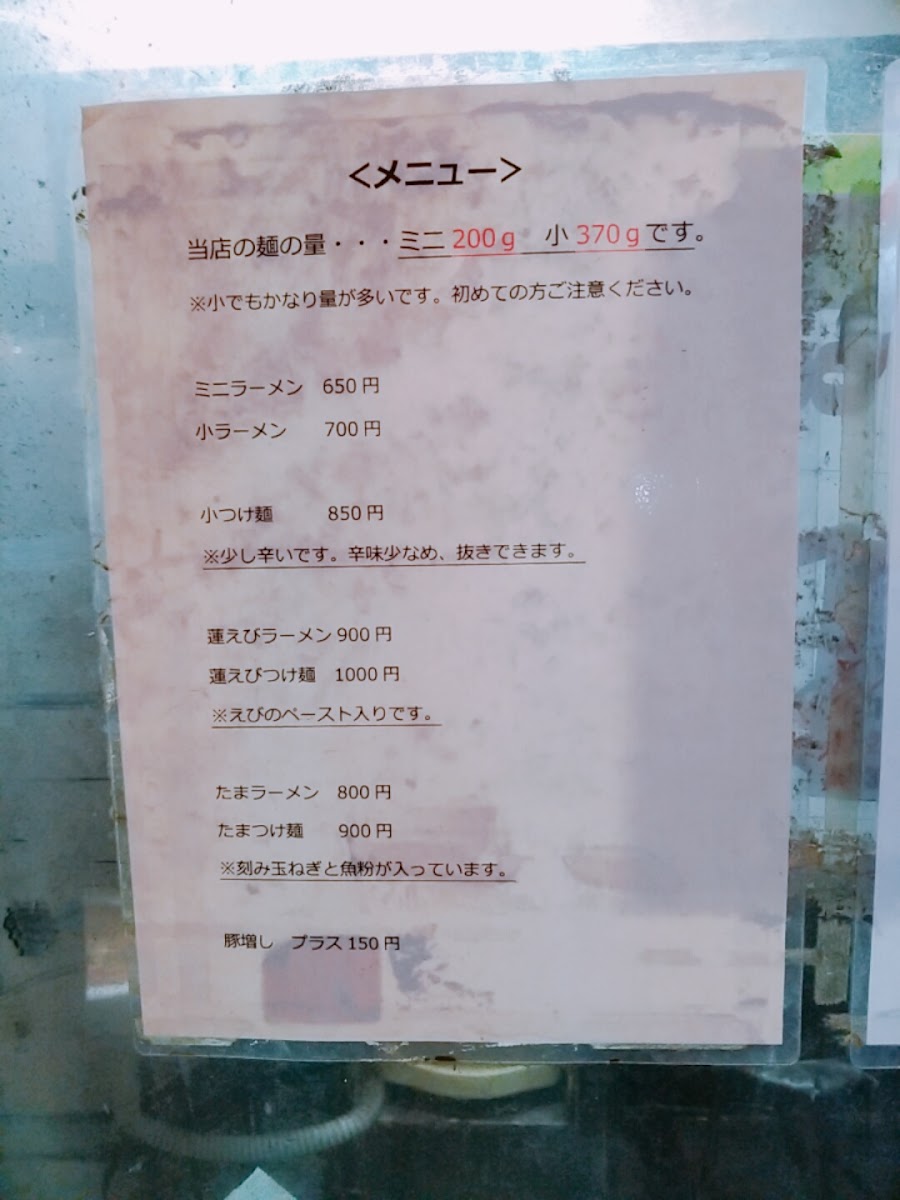 <メニュー>
当店の麺の量・・・ミニ 200g 小 370g です。
※小でもかなり量が多いです。初めての方ご注意ください。
ミニラーメン 650 円
小ラーメン 700 円
小つけ麺 850 円
※少し辛いです。辛味少なめ、抜きできます。
蓮えびラーメン 900 円
蓮えびつけ麺 1000 円
※えびのペースト入りです。
たまラーメン 800 円
たまつけ麺 900 円
※刻み玉ねぎと魚粉が入っています。
豚増し プラス 150 円